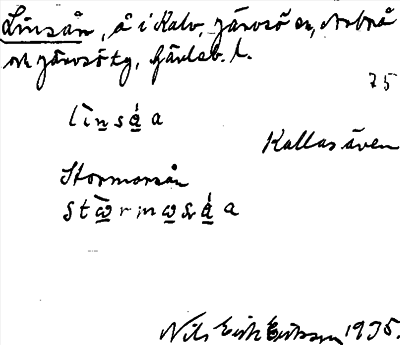 Linsån, å i Kalv, Järvsö sn, Arbrå
och Järvsö tg, Gävleb. l.
75
lins å a
Kallas även
Stormorsån
Nils Erik Eriksson 1935.